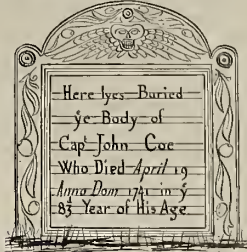 Here lyes Buried
yᵉ Body of
Capᵗ John Coe
Who Died April 19
Anno Dom 1741 in yᵉ
83ᵈ Year of His Age.